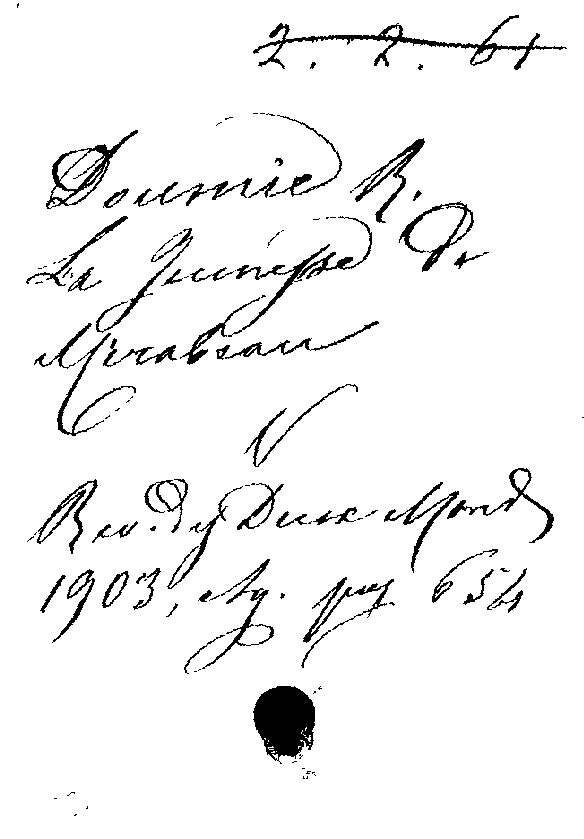 2. 2. 61
Doumic R.
La Jeunesse de
Mirabeau
V
Rev. d. Deux Mond
1903, Ag. pag 654